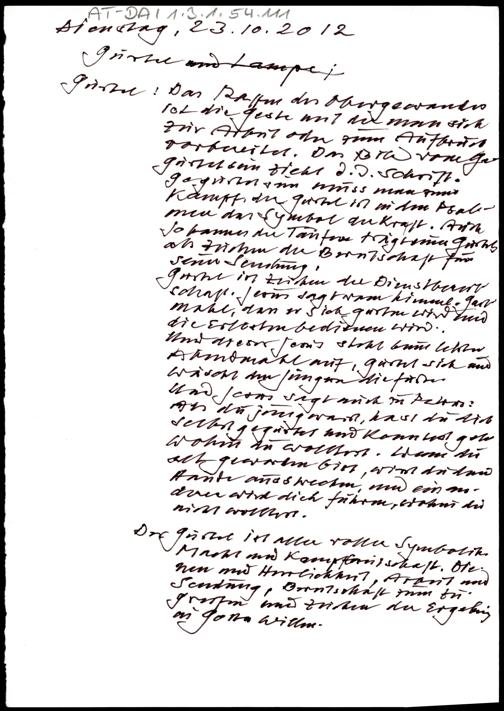 AT-DA 1.3.1.54.111
Dienstag, 23.10.2012
Gürtel und Lampe;
Gürtel: Das Raffen des Obergewandes
ist die Geste mit der man sich
zur Arbeit oder zum Aufbruch
vorbereitet. Das Bild vom Ge-
gürtetsein zieht d. d. Schrift.
Gegürtet sein muss man zum
Kampf, der Gürtel ist in den Psal-
men das Symbol der Kraft. Auch
Johannes der Täufer trägt einen Gürtel
als Zeichen der Bereitschaft für
seine Sendung.
Gürtel ist Zeichen der Dienstbereit
schaft. Jesus sagt vom himml. Gast
mahl, dass er sich gürten wird und
die Erlösten bedienen wird.
Und dieser Jesus steht beim letzten
Abendmahl auf, gürtet sich und
wäscht den Jüngern die Füsse.
Und Jesus sagt auch zu Petrus:
Als du jung warst, hast du dich
selbst gegürtet und konntest gehen
wohin du wolltest. Wenn du
alt geworden bist, wirst du deine
Hände ausstrecken, und ein an-
derer wird dich führen, wohin du
nicht wolltest.
Der Gürtel ist also voller Symbolik:
Macht und Kampfbereitschaft. Die-
nen und Herrlichkeit, Arbeit und
Sendung, Bereitschaft zum Zu-
greifen und Zeichen der Ergebung
in Gottes Willen.